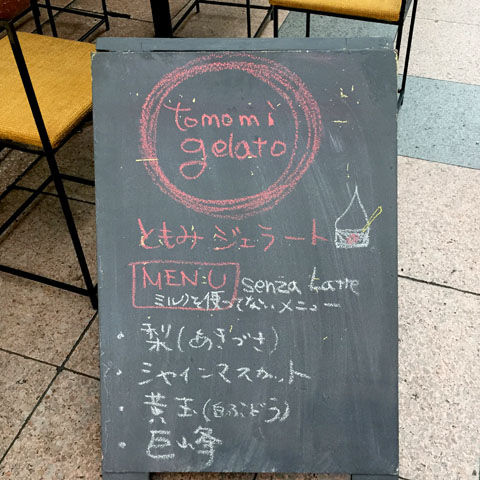 tomomi
gelato
ともみ ジェラート
MENU senza latte
ミルクを使ってないメニュー
・梨(あきづき)
・シャインマスカット
・黄玉(白ぶどう)
・巨峰